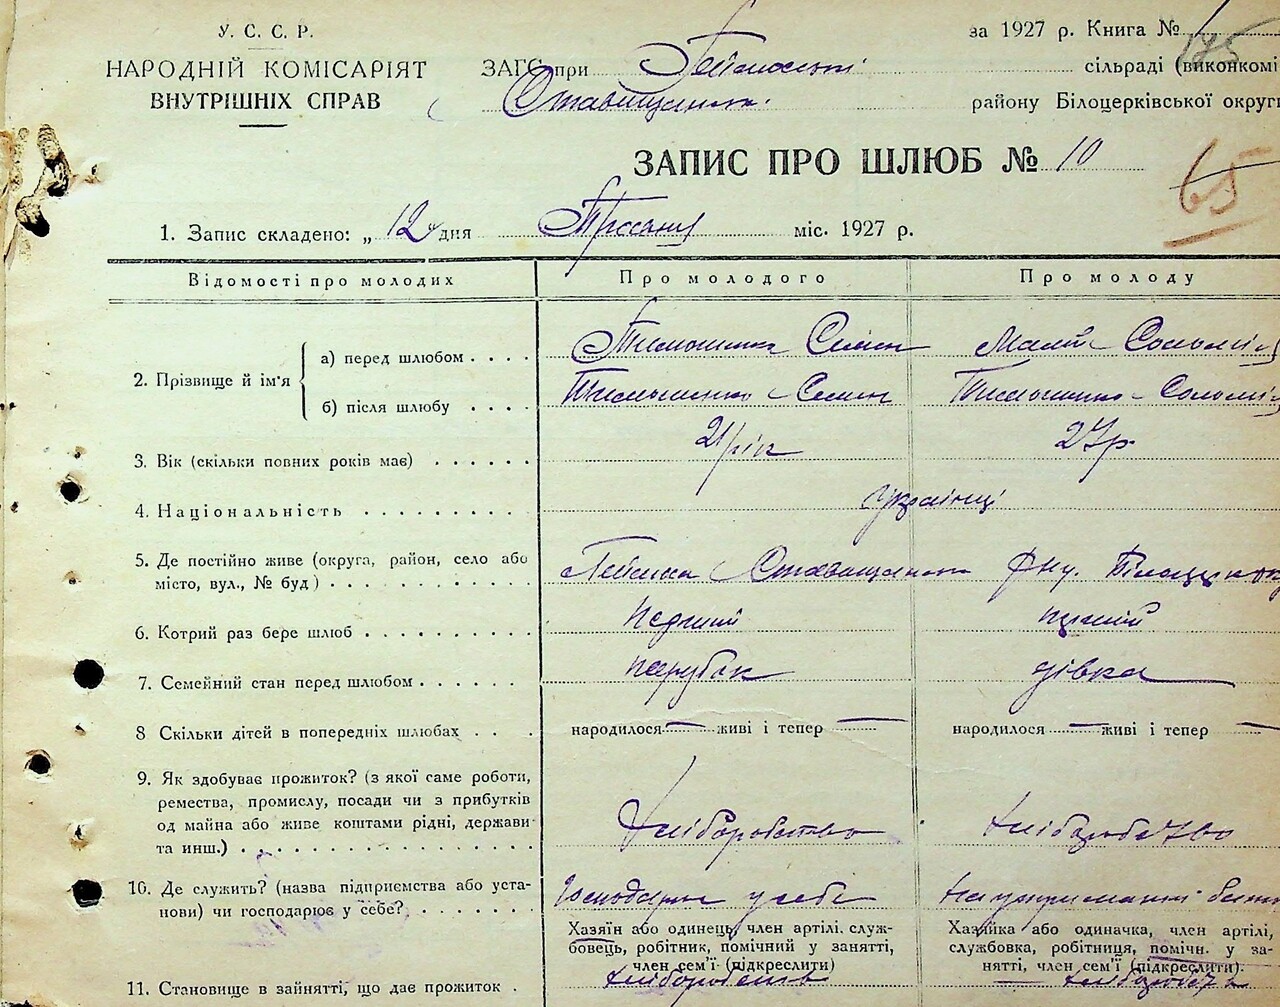 У. С. С. Р.
НАРОДНІЙ КОМІСАРІЯТ
ВНУТРІШНІХ СПРАВ
за 1927 р. Книга №
175
ЗАГС при сільраді (виконкомі
Ставищанськ. району Білоцерківської округи
ЗАПИС ПРО ШЛЮБ № 10
65
1. Запис складено: „ 12 дня Травня міс. 1927 р.
Відомості про молодих Про молодого Про молоду
2. Прізвище й ім'я
а) перед шлюбом . . . . Тимошенко Семен Соломія
б) після шлюбу . . . . Тимошенко Семен Тимошенко Соломія
3. Вік (скільки повних років має) . . . . . . 21 рік 27 р.
4. Національність . . . . . . . . . українці
5. Де постійно живе (округа, район, село або
місто, вул., № буд) . . . . . . . . . . . . Гейсиха Ставищанськ
6. Котрий раз бере шлюб . . . . . . . . . . перший перший
7. Семейний стан перед шлюбом . . . . . . . парубок дівка
8 Скільки дітей в попередніх шлюбах . . . народилося — живі і тепер — народилося — живі і тепер —
9. Як здобуває прожиток? (з якої саме роботи,
ремества, промислу, посади чи з прибутків
од майна або живе коштами рідні, держави
та инш.) . . . . . . . . . . . . . . . . хліборобство хліборобство
10. Де служить? (назва підприємства або уста-
нови) чи господарює у себе? . . . . . . . Господарює у себе на утриманні
Хазяїн або одинець, член артілі. служ-
бовець, робітник, помічний у занятті,
член сем'ї (підкреслити)
Хазяйка або одиначка, член артілі,
службовка, робітниця, помічн. у за-
нятті, член сем'ї (підкреслити).
11. Становище в зайнятті, що дає прожиток .